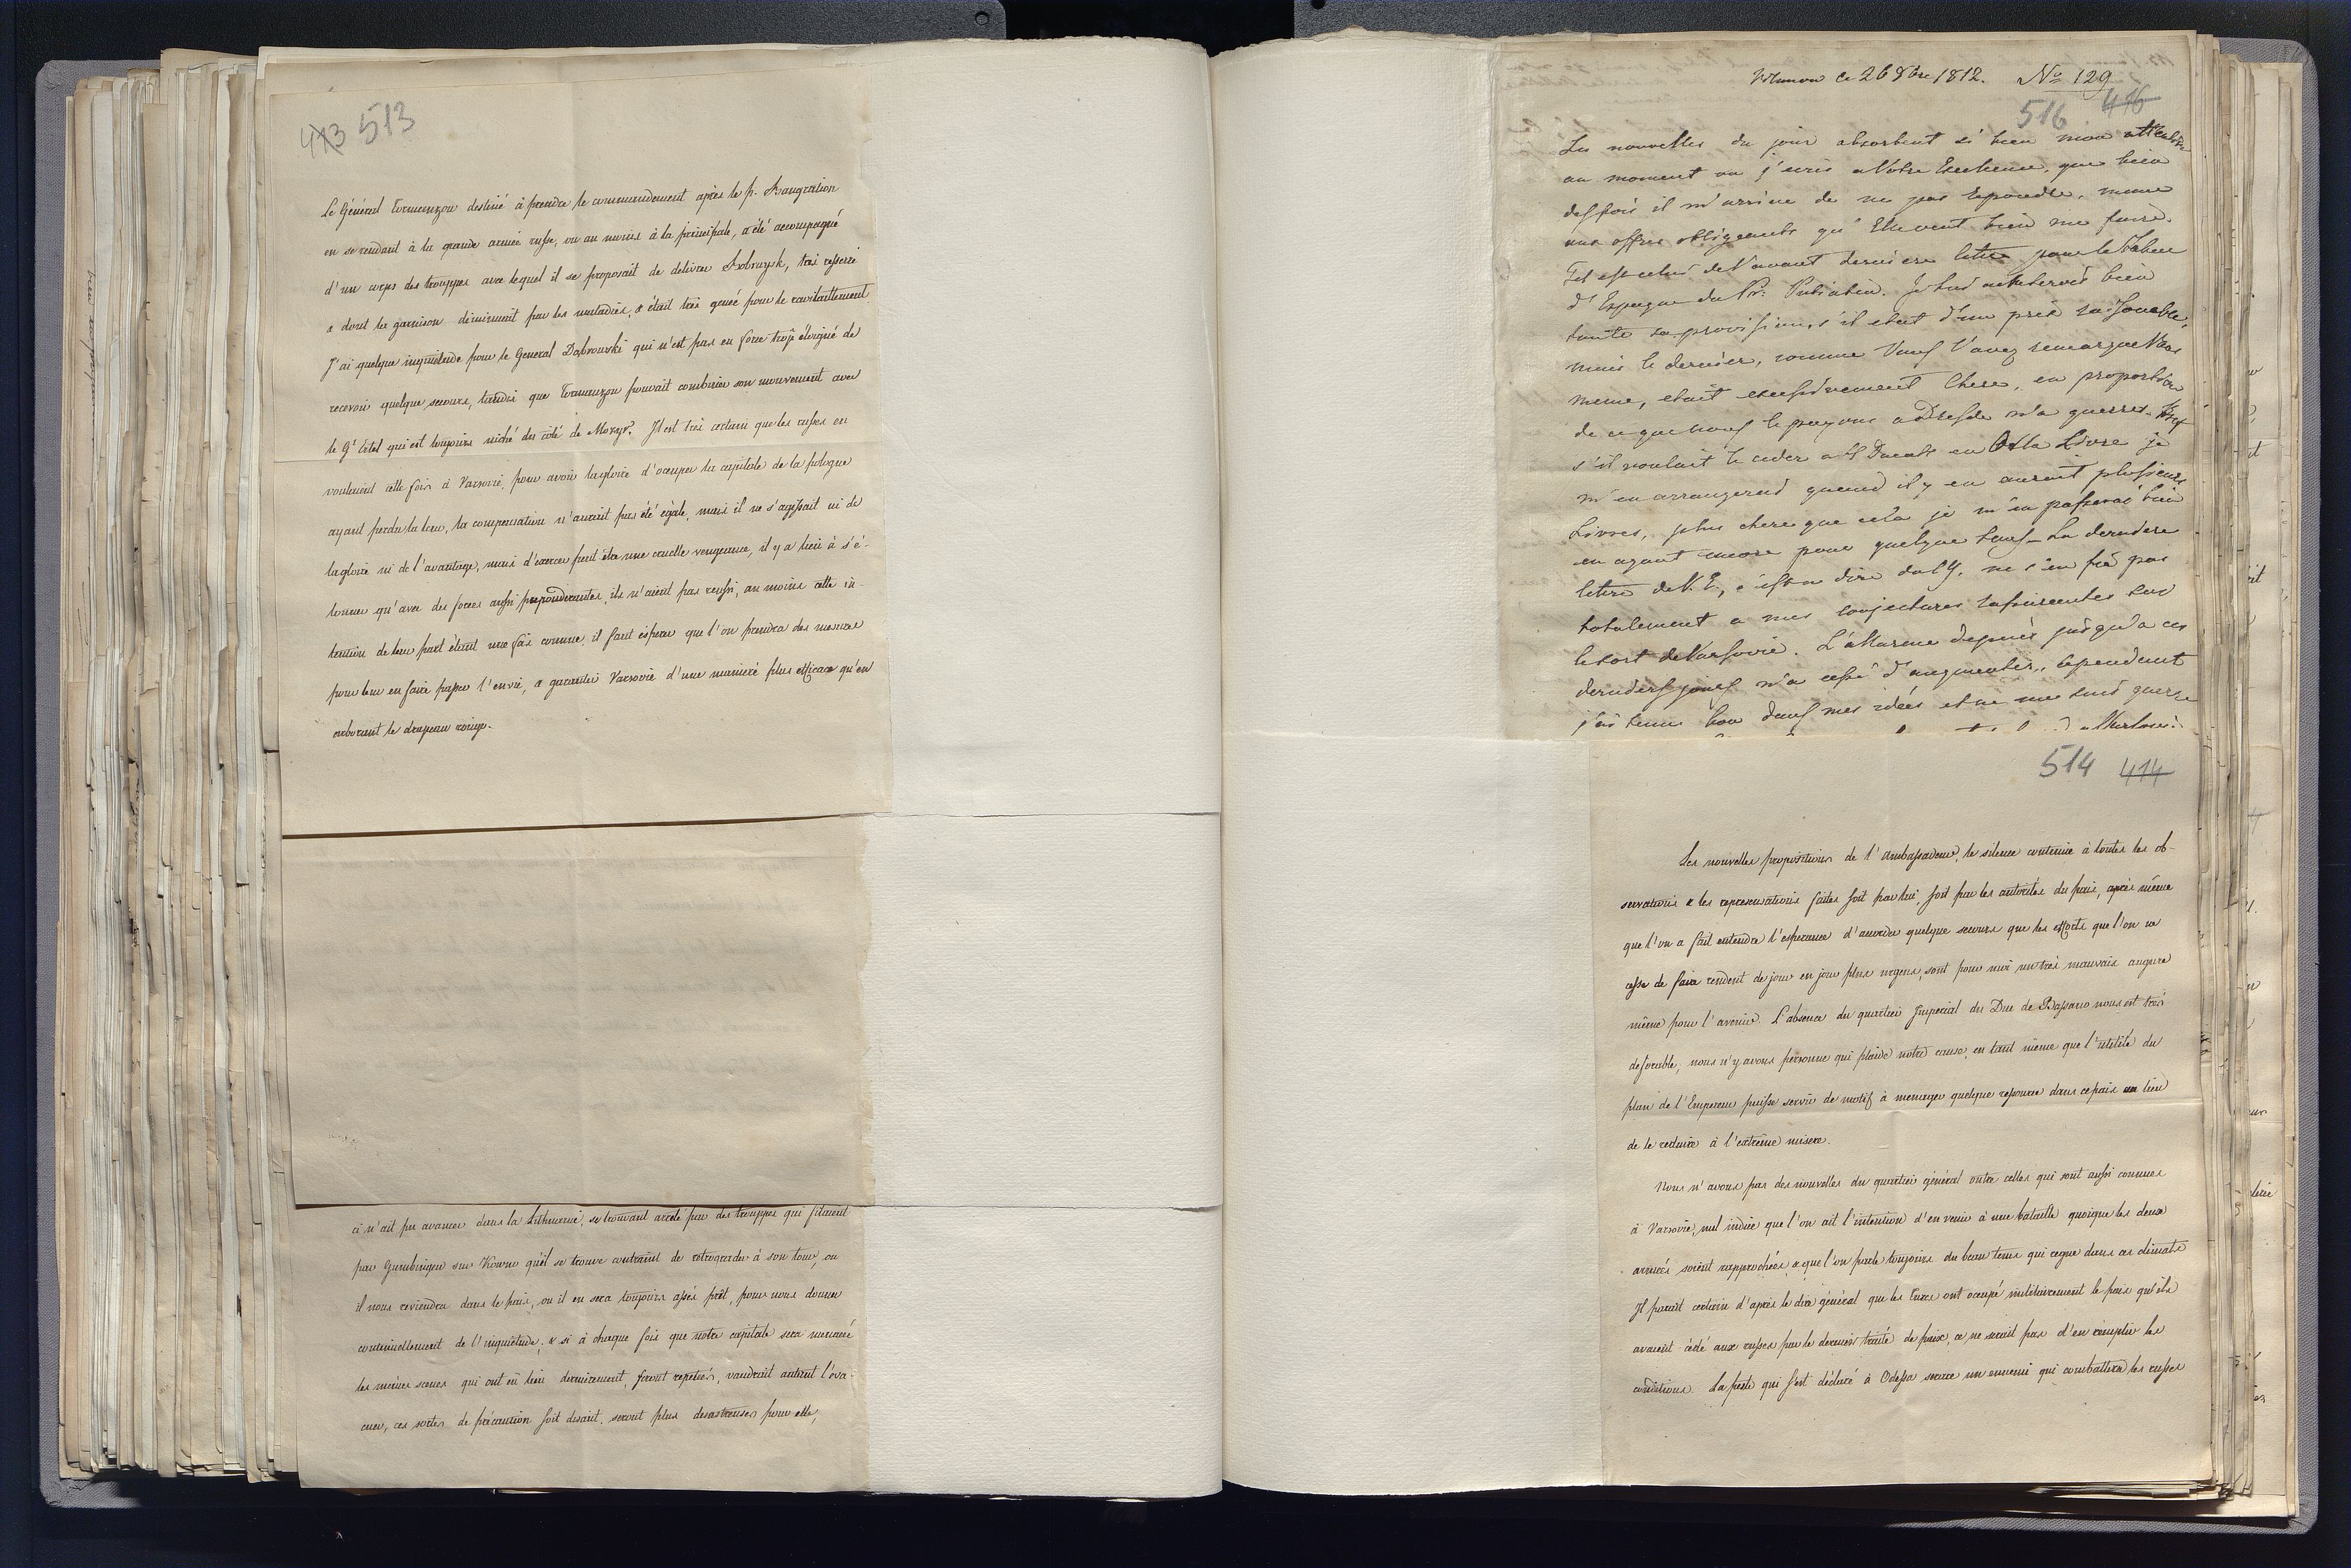 473 513
Le Général Tormanzow destiné à prendre le commandement après le p. Bangration
en se rendant à la grande armée russe, ou au moins à la principale, a été accompagné
d'un corps des trouppes avec lequel il se proposait de delivrer Bobruysk, très resserré
& dont la garnison diminuait par les maladies, & était très genée pour le ravitaillement
J'ai quelque inquietude pour le General Dąbrowski qui n'est pas en force trop éloigné de
recevoir quelque secours, tandis que Tormanzow pouvait combiner son mouvement avec
le Gl Ertel qui est toujours niché du coté de Mozyr. Il est très certain que les russes en
voulaient cette fois à Varsovie, pour avoir la gloire d'occuper la capitale de la pologne
ayant perdu la leur, la compensation n'aurait pas été égale, mais il ne s'agissait ni de
la gloire ni de l'avantage, mais d'exercer peut être une cruelle vengeance, il y a lieu à s'é-
tonner qu'avec des forces aussi preponderantes, ils n'aient pas reussi, au moins cette in-
tention de leur part étant une fois connue, il faut esperer que l'on prendra des mesures
pour leur en faire passer l'envie, & garantir Varsovie d'une manière plus efficace qu'en
arborant le drapeau rouge.
ci n'ait pu avancer dans la Lithuanie, se trouvant arreté par des trouppes qui filaient
par Gumbingen sur Kowno qu'il se trouve contraint de retrograder à son tour, ou
il nous reviendra dans le pais, ou il en sera toujours assés prêt, pour nous donner
continuellement de l'inquiétude, & si à chaque fois que notre capitale sera menacée
les mêmes scenes qui ont eû lieu dernierement, seront repetées, vaudrait autant l'éva-
cuer, ces sortes de précaution soit disant, seront plus desastreuses pour elle,
ce 26 8bre 1812. No 129
516 416
Les nouvelles du jour absorbent si bien mon attention
au moment ou j'ecris a Votre Excellence, que bien
desfois il m'arrive de ne pas repondre, meme
aux offres obligeants qu'Elle veut bien me faire.
Tel est celui de l'avant derniere lettre pour le Tabac
d'Espagne du Pr:
toute sa provision, s'il etoit d'un prix raisonable,
mais le dernier, comme Vous l'avez remarqué Vous
meme, etoit excessivement chere, en proportion
de ce que nous le payons a Dresde
s'il vouloit le ceder a Ducats la Livre je
m'en arrangerois quand il y en auroit plusieurs
Livres, plus chere que cela je m'en passerai bien
en ayant encore pour quelque tems - La derniere
lettre de V. E, c'est a dire du 19. ne s'en fie pas
totalement a mes conjectures rassurantes sur
le sort de Varsovie. L'allarme depuis jusqu'a ces
derniers jours n'a cessé d'augmenter, cependant
j'ai tenu bon dans mes idées et ne me suis guerre
514 414
Les nouvelles propositions de l'Ambassadeur, le silence continué à toutes les ob-
servations & les representations faites soit par lui, soit par les autorités du pais, après même
que l'on a fait entendre l'esperance d'accorder quelque secours que les efforts que l'on ne
cesse de faire rendent de jour en jour plus urgens, sont pour moi un très mauvais augure
même pour l'avenir. L'absence du quartier Imperial du Duc de Bassano nous est très
, nous n'y avons personne qui plaide notre cause, en tant même que l'utilité du
plan de l'Empereur puisse servir de motif à menager quelque ressource dans ce pais au lieu
de le reduire à l'extrême misere.
Nous n'avons pas des nouvelles du quartier général outre celles qui sont aussi connues
à Varsovie, nul indice que l'on ait l'intention d'en venir à une bataille quoique les deux
armées soient rapprochées, & que l'on parle toujours du beau tems qui regne dans ces climats
Il parait certain d'après le dire général que les Turcs ont occupé militairement le pais qu'ils
avaient cédé aux russes par le dernier traité de paix, ce ne serait pas d'en remplir les
conditions. La peste qui s'est déclaré à Odessa sera un ennemi qui combattera les russes